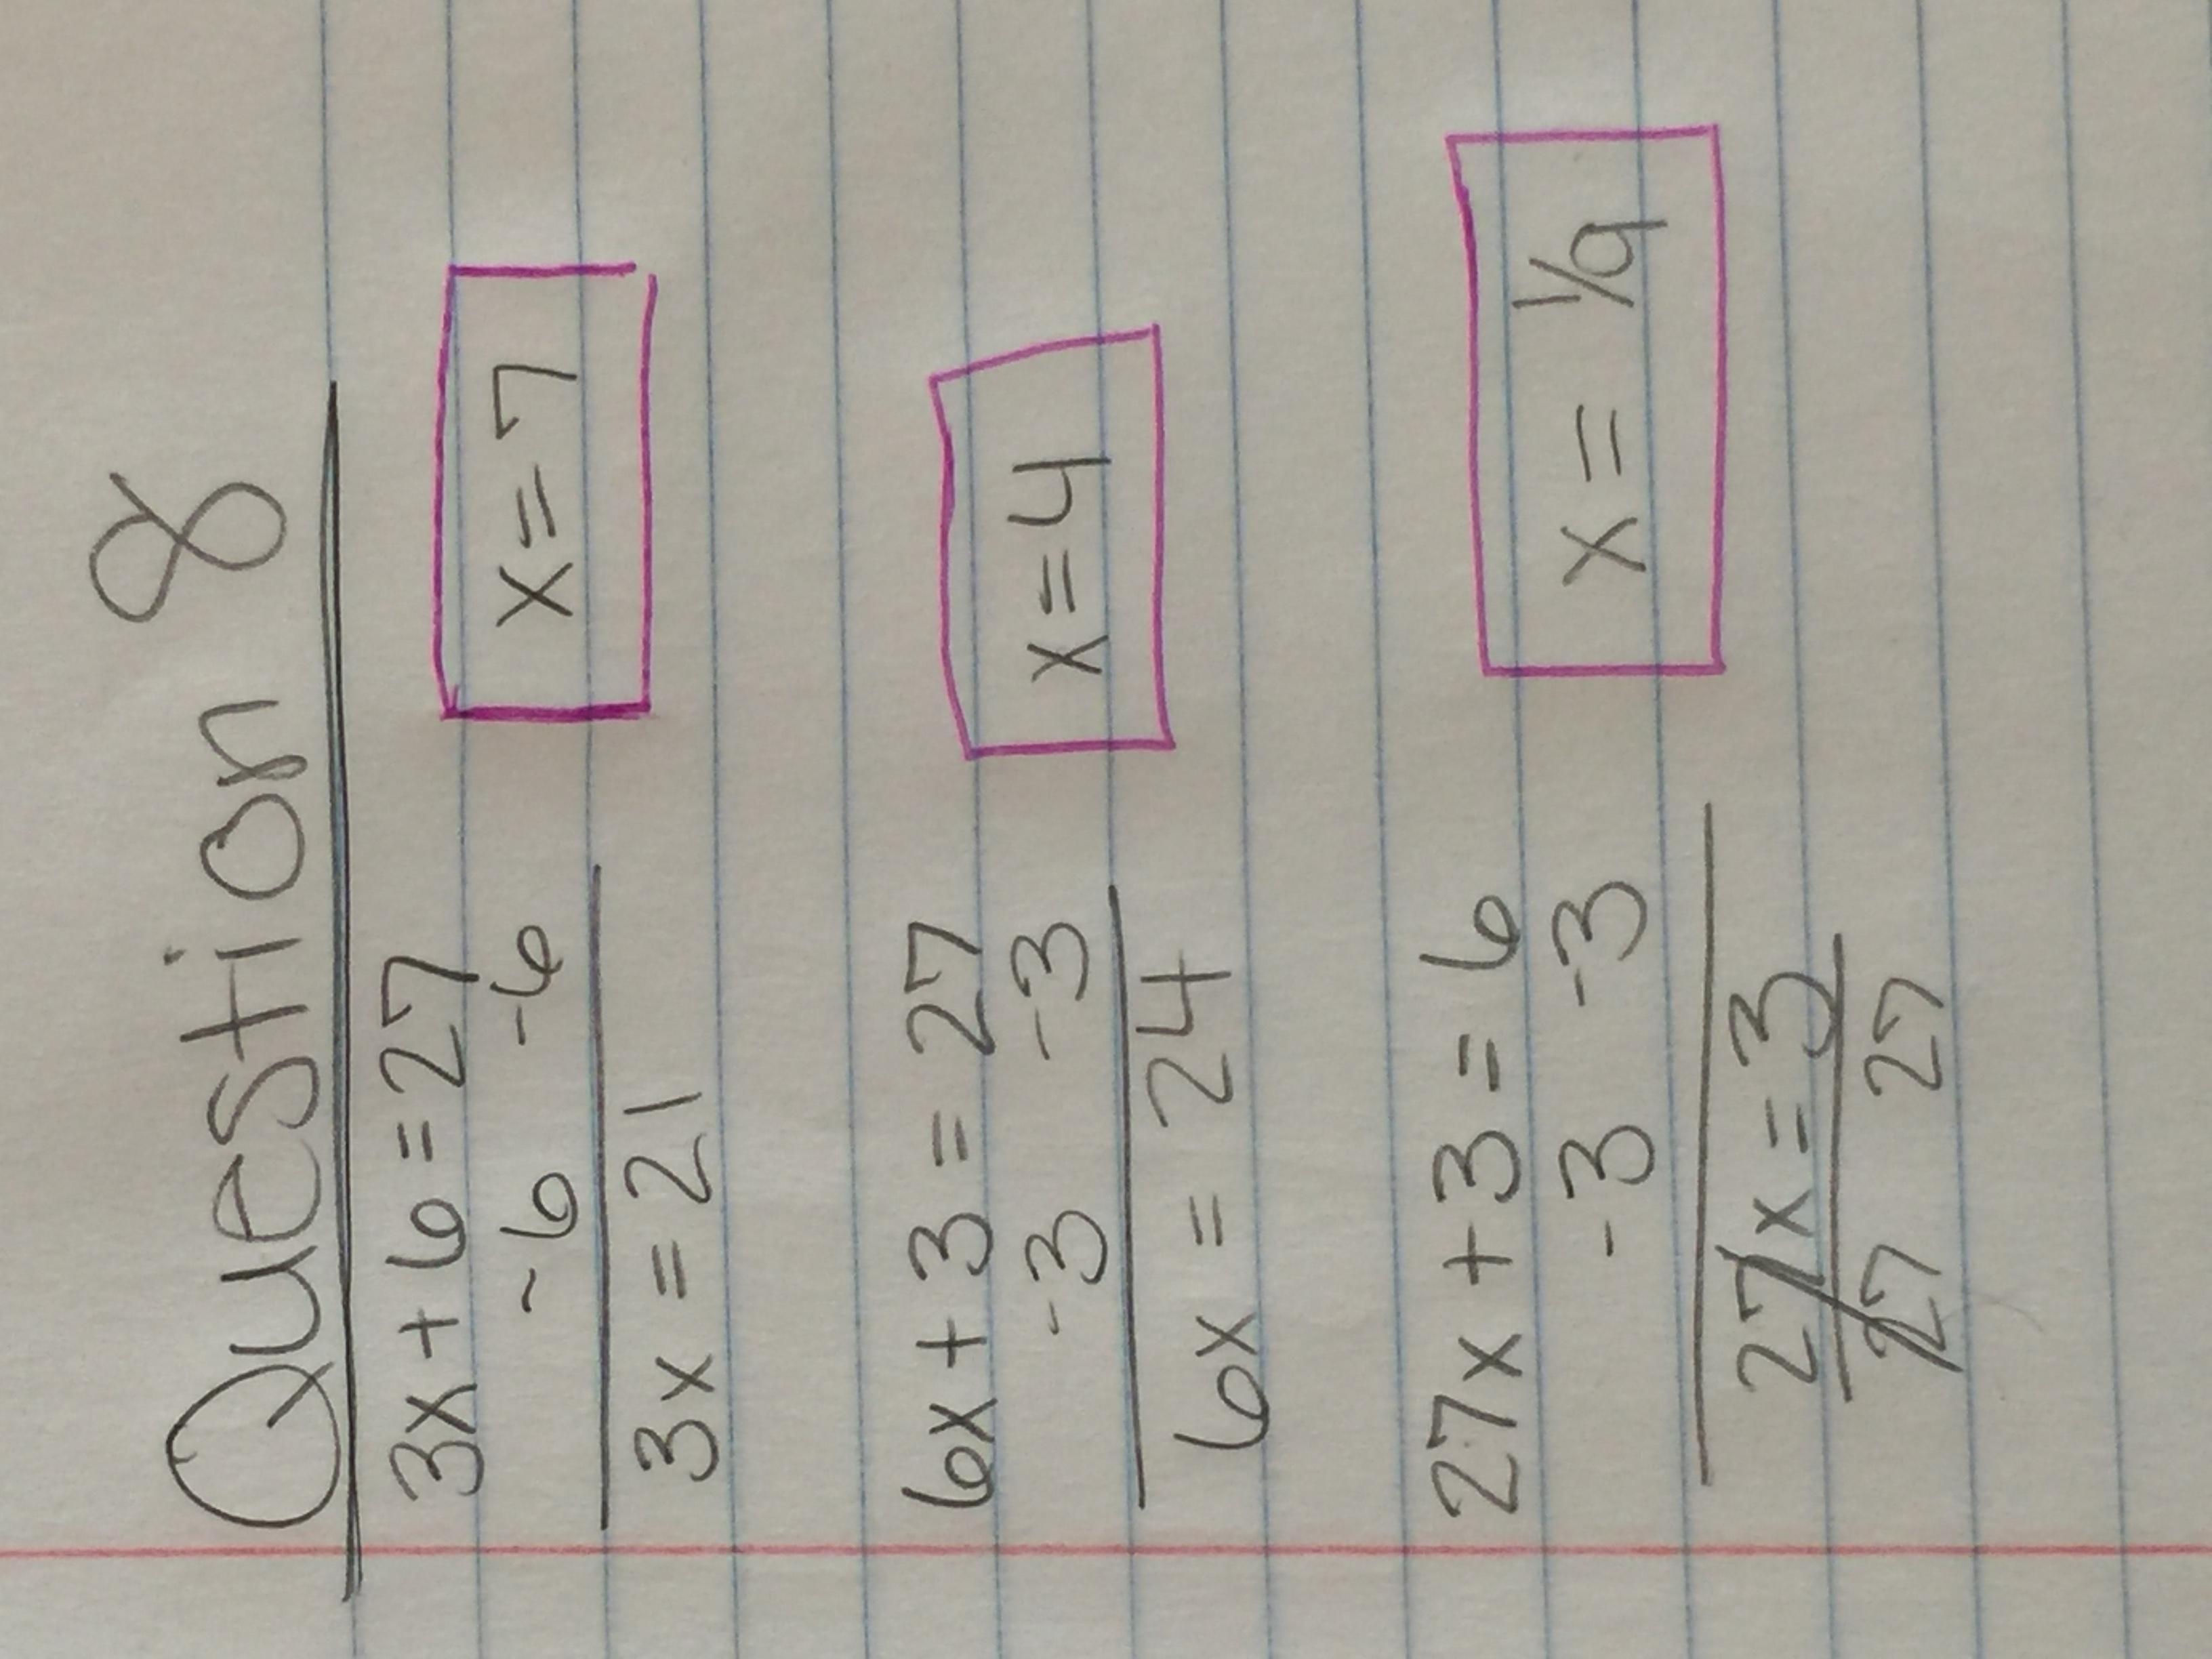 Question 8
3x + 6 = 27
-6 -6
x = 7
3x = 21
6x + 3 = 27
-3 -3
x = 4
6x = 24
27x + 3 = 6
-3 -3
x = 1/9
27x = 3
27 27